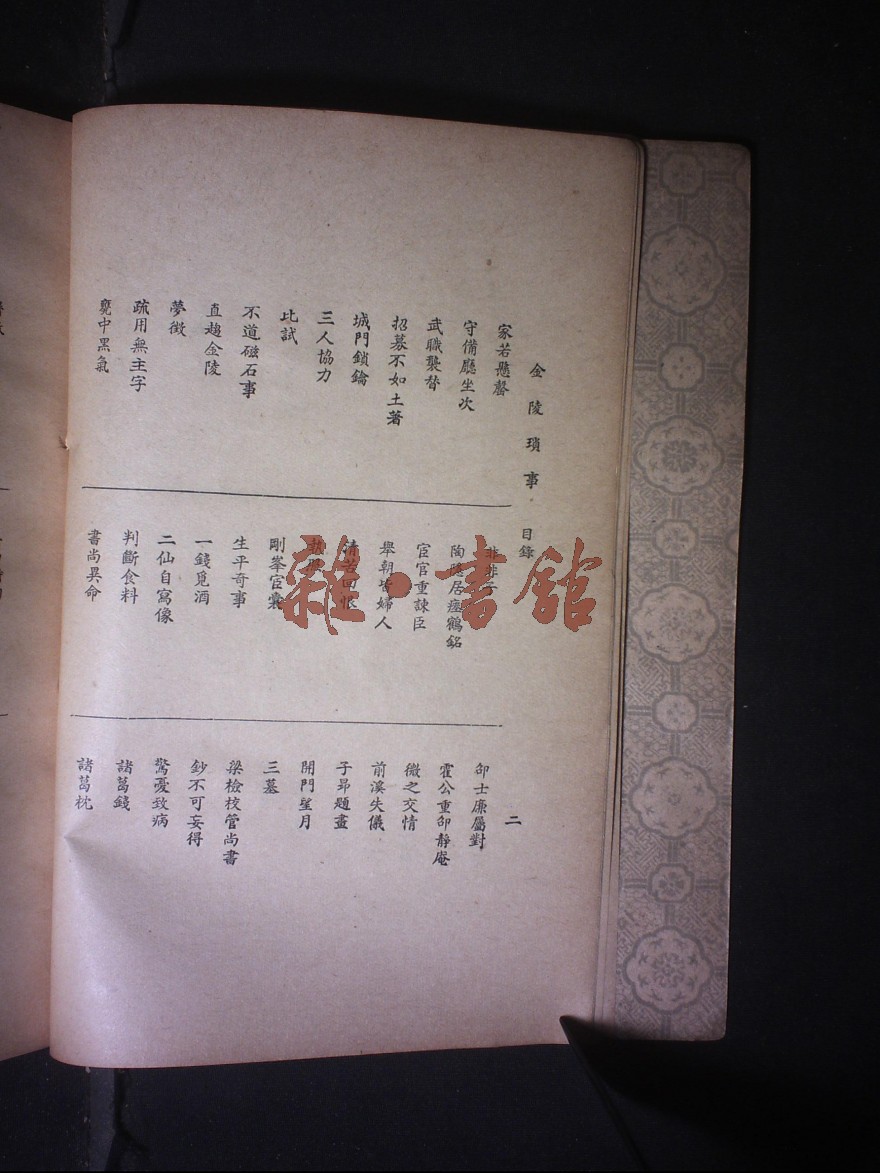 金陵瑣事 目錄 二
家若懸罄
守備廳坐次
武職襲替
招募不如土著
城門鎖鑰
三人協力
比試
不道磁石事
直趨金陵
夢徵
疏用無主字
甕中黑氣
陶隱居瘞鶴銘
宦官重諫臣
舉朝皆婦人
剛峯宦囊
生平奇事
一錢覓酒
二仙自寫像
判斷食料
書尚異命
邵士廉屬對
霍公重邵靜庵
微之交情
前溪失儀
子昻題畫
開門望月
三墓
梁檢校管尚書
鈔不可妄得
驚憂致病
諸葛錢
諸葛枕
雜·書館